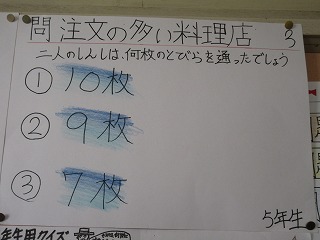 問 注文の多い料理店 3
二人のしんしは、何枚のとびらを通ったでしょう
① 10枚
② 9枚
③ 7枚
5年生
年生用クイズ